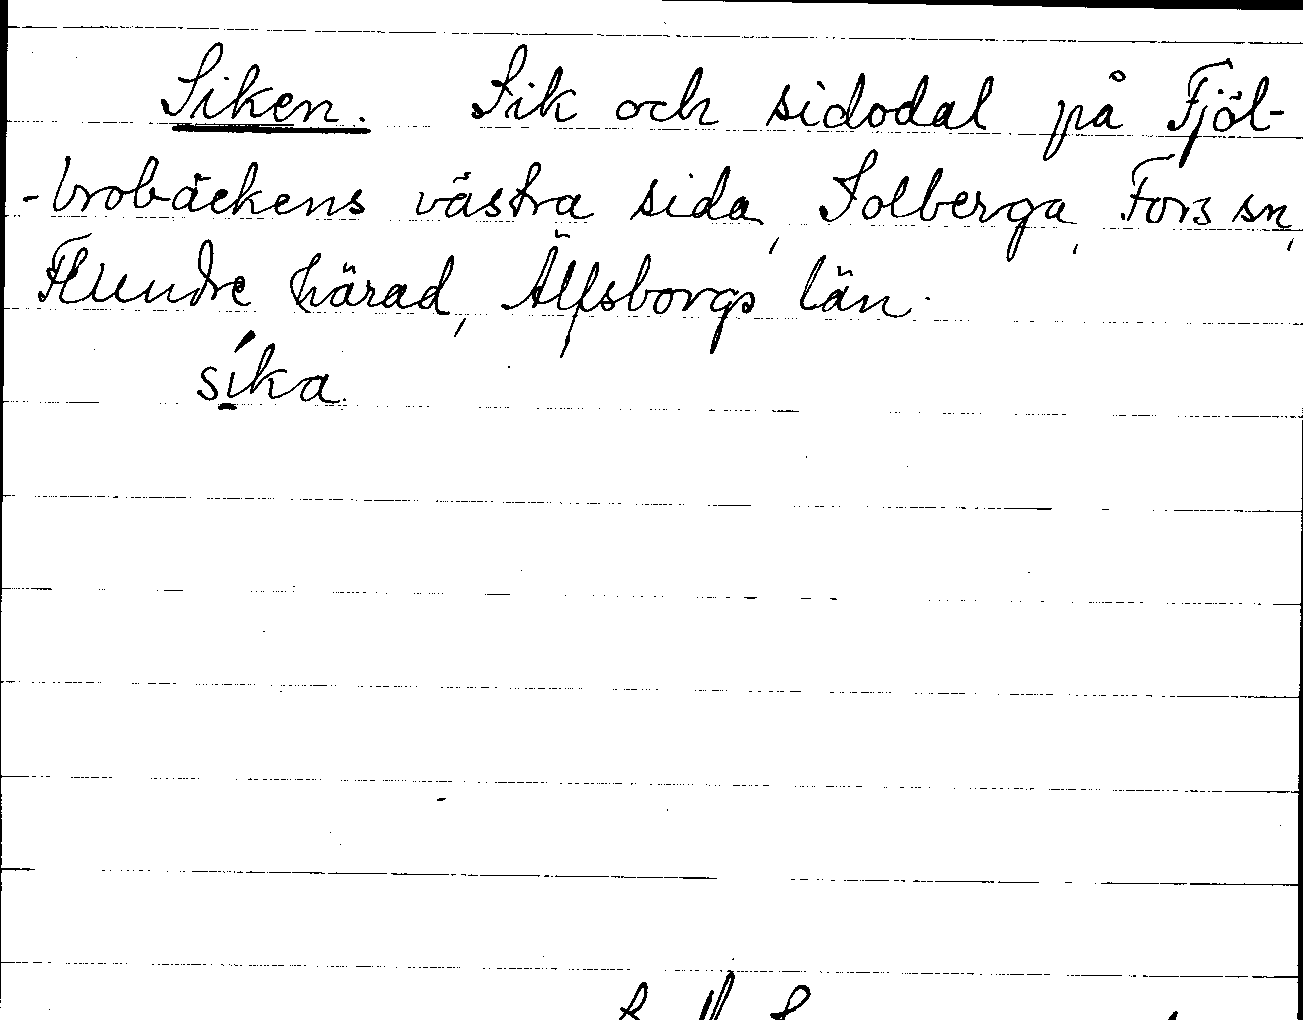 Siken. Sik och sidodal på Fjöl-
-brobäckens västra sida, Solberga, Fors sn,
Flundre härad, Älfsborgs län.
síka